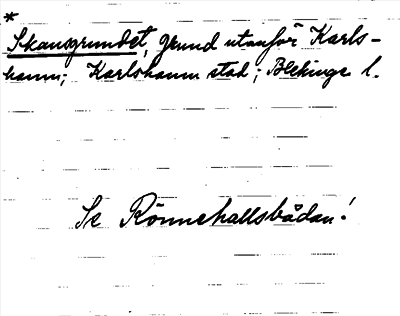 *
Skansgrundet, grund utanför Karls-
hamn; Karlshamn stad; Blekinge l.
Se Rönnehallsbådan!